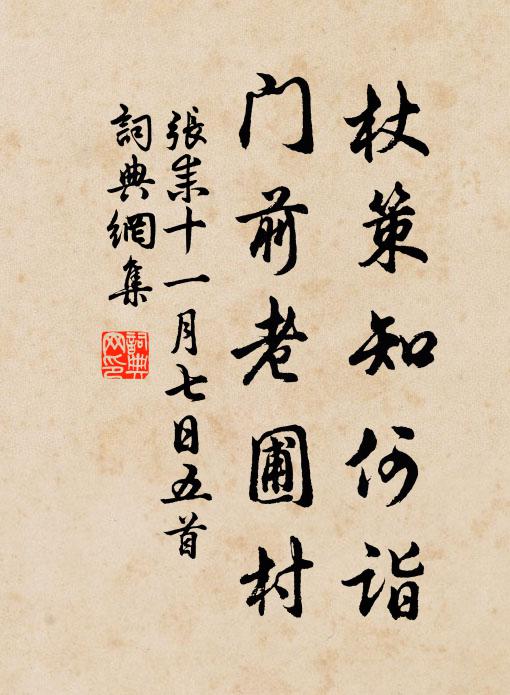 杖策知何詣
门前老圃村
張耒十一月七日五首
詞典網集
詞典網印